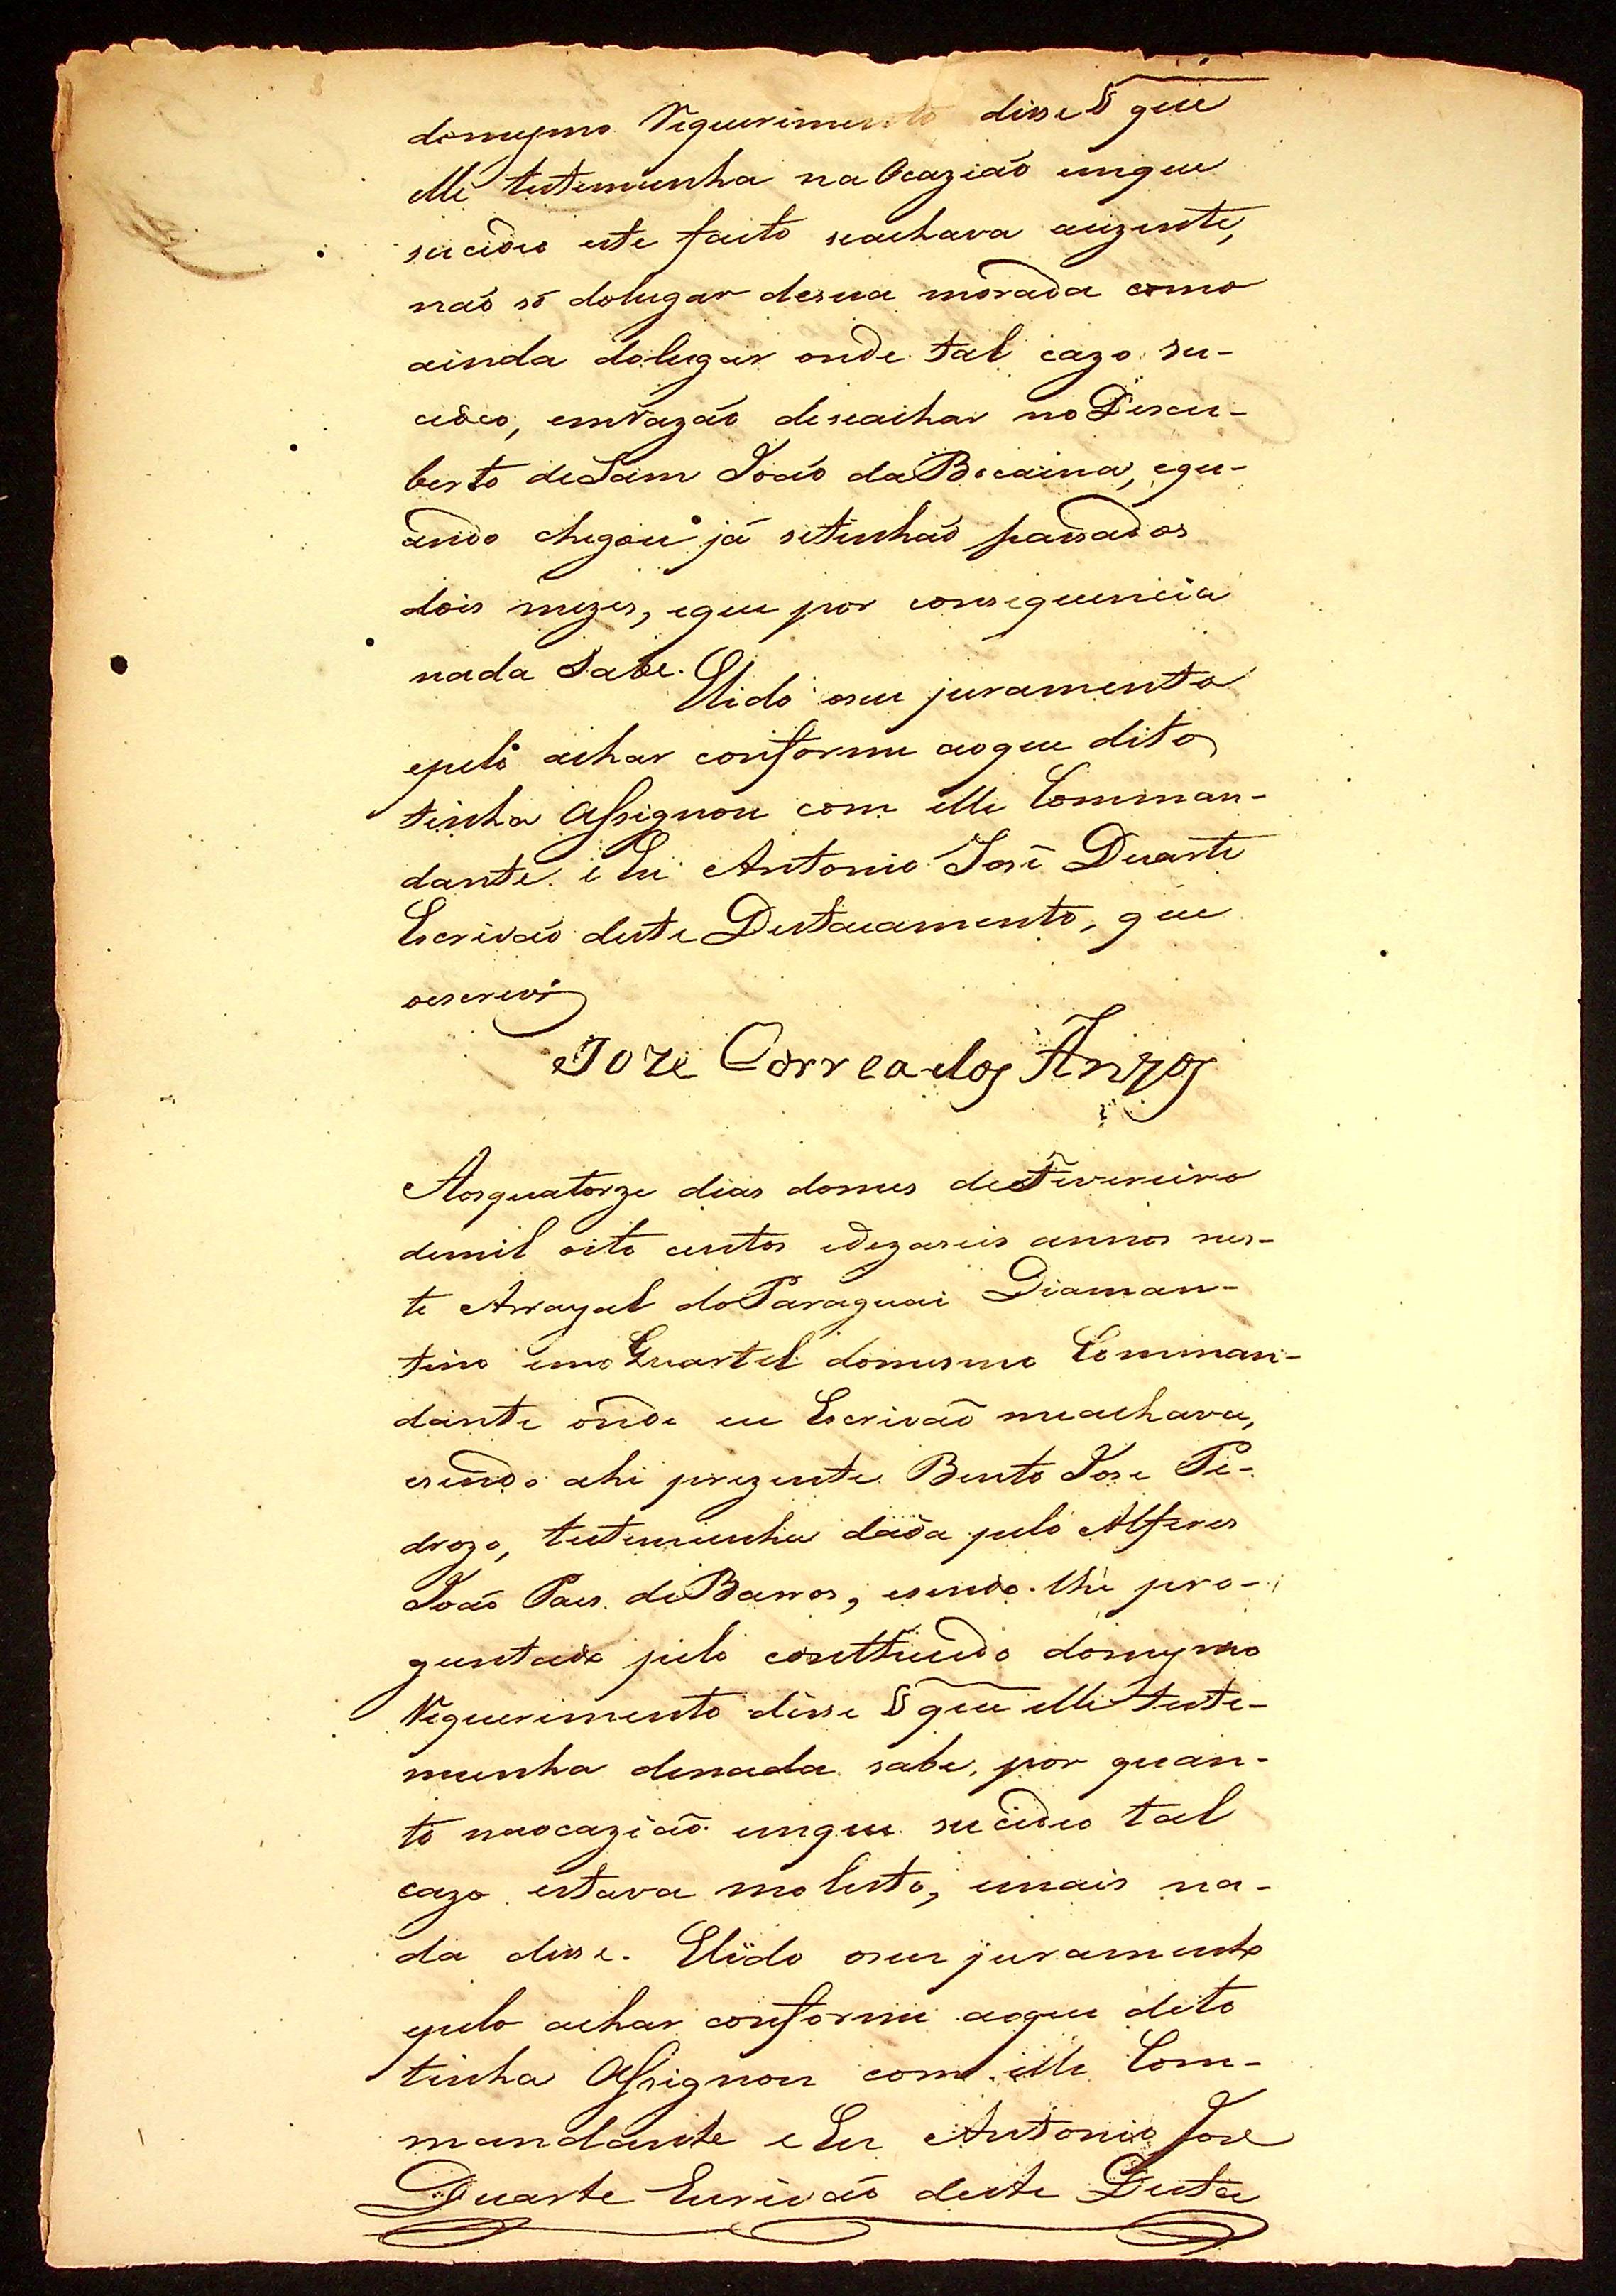 domesmo Requerimento disse § que
elle testemunha na Ocazião emque
sucedeo este facto seachava auzente,
não só dolugar desua morada como
ainda dolugar onde tal cazo su-
cedeo, emrazão deseachar no Descu-
berto deSam João daBocaina, equ-
ando chegou já setinhão passados
dois mezes, eque por consequencia
nada Sabe. Elido oseu juramento
epelo achar conforme aoque dito
tinha Assignou com elle Comman-
dante. e Eu Antonio José Duarte
Escrivão deste Destacamento, que
oescrevi
Joze Correa dos Anzos
Aosquatorze dias domes deFevereiro
demil oito centos edezaseis annos nes-
te Arrayal doParaguai Diaman-
tino emo Quartel domesmo Comman-
dante onde eu Escrivão meachava,
esendo ahi prezente Bento Jose Pe-
drozo, testemunha dada pelo Alferes
João Paes deBarros, esendo-lhe pro-
guntado pelo conttheudo domesmo
Requerimento disse § que elle teste-
munha denada sabe, por quan-
to naocazião emque sucedeo tal
cazo estava molesto, emais na-
da disse. Elido oseu juramento
epelo achar conforme aoque dito
tinha Assignou com elle Com-
mandante e Eu Antonio Jose
Duarte Escrivão deste Desta